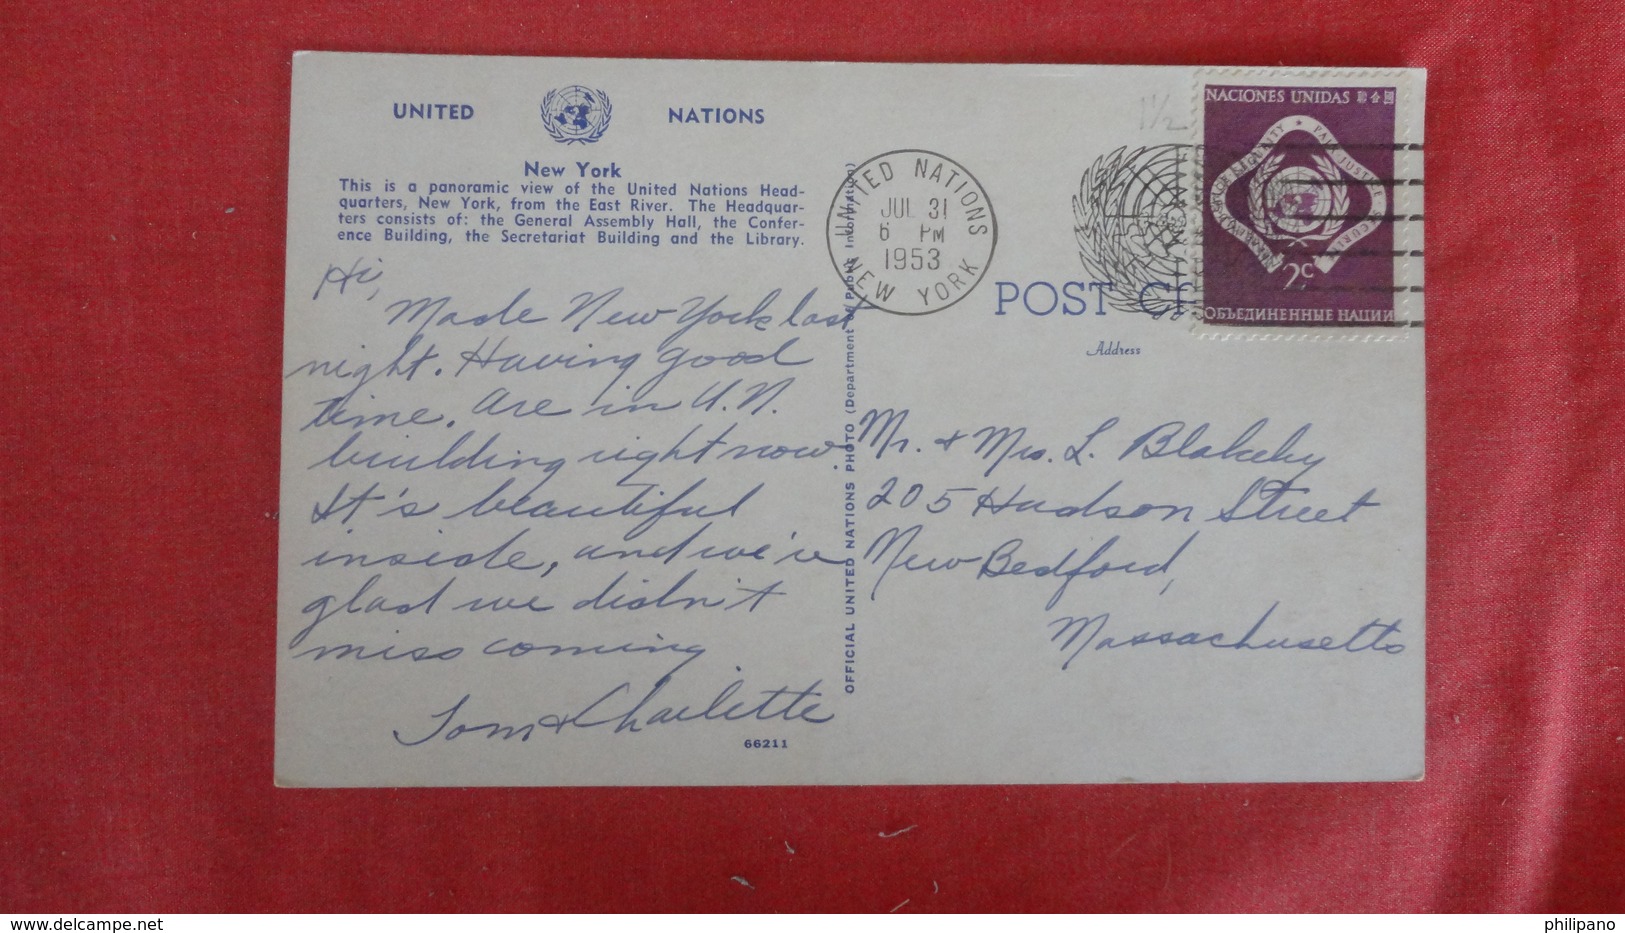 UNITED NATIONS
New York
This is a panoramic view of the United Nations Head-
quarters, New York, from the East River. The Headquar-
ters consists of: the General Assembly Hall, the Confer-
ence Building, the Secretariat Building and the Library.
Hi,
Made New York last
night. Having good
time. Are in U.N.
building right now.
It's beautiful
inside, and we're
glad we didn't
miss coming
Tom & Charlotte
66211
OFFICIAL UNITED NATIONS PHOTO (Department of Public Information)
UNITED NATIONS
JUL 31
6 PM
1953
NEW YORK
1½
NACIONES UNIDAS 聯合國
PAIX JUSTICE SECURITE
2c
ОБЪЕДИНЕННЫЕ НАЦИИ
POST
Address
Mr. & Mrs. L. Blakeley
205 Hudson Street
New Bedford,
Massachusetts
www.delcampe.net
philipano